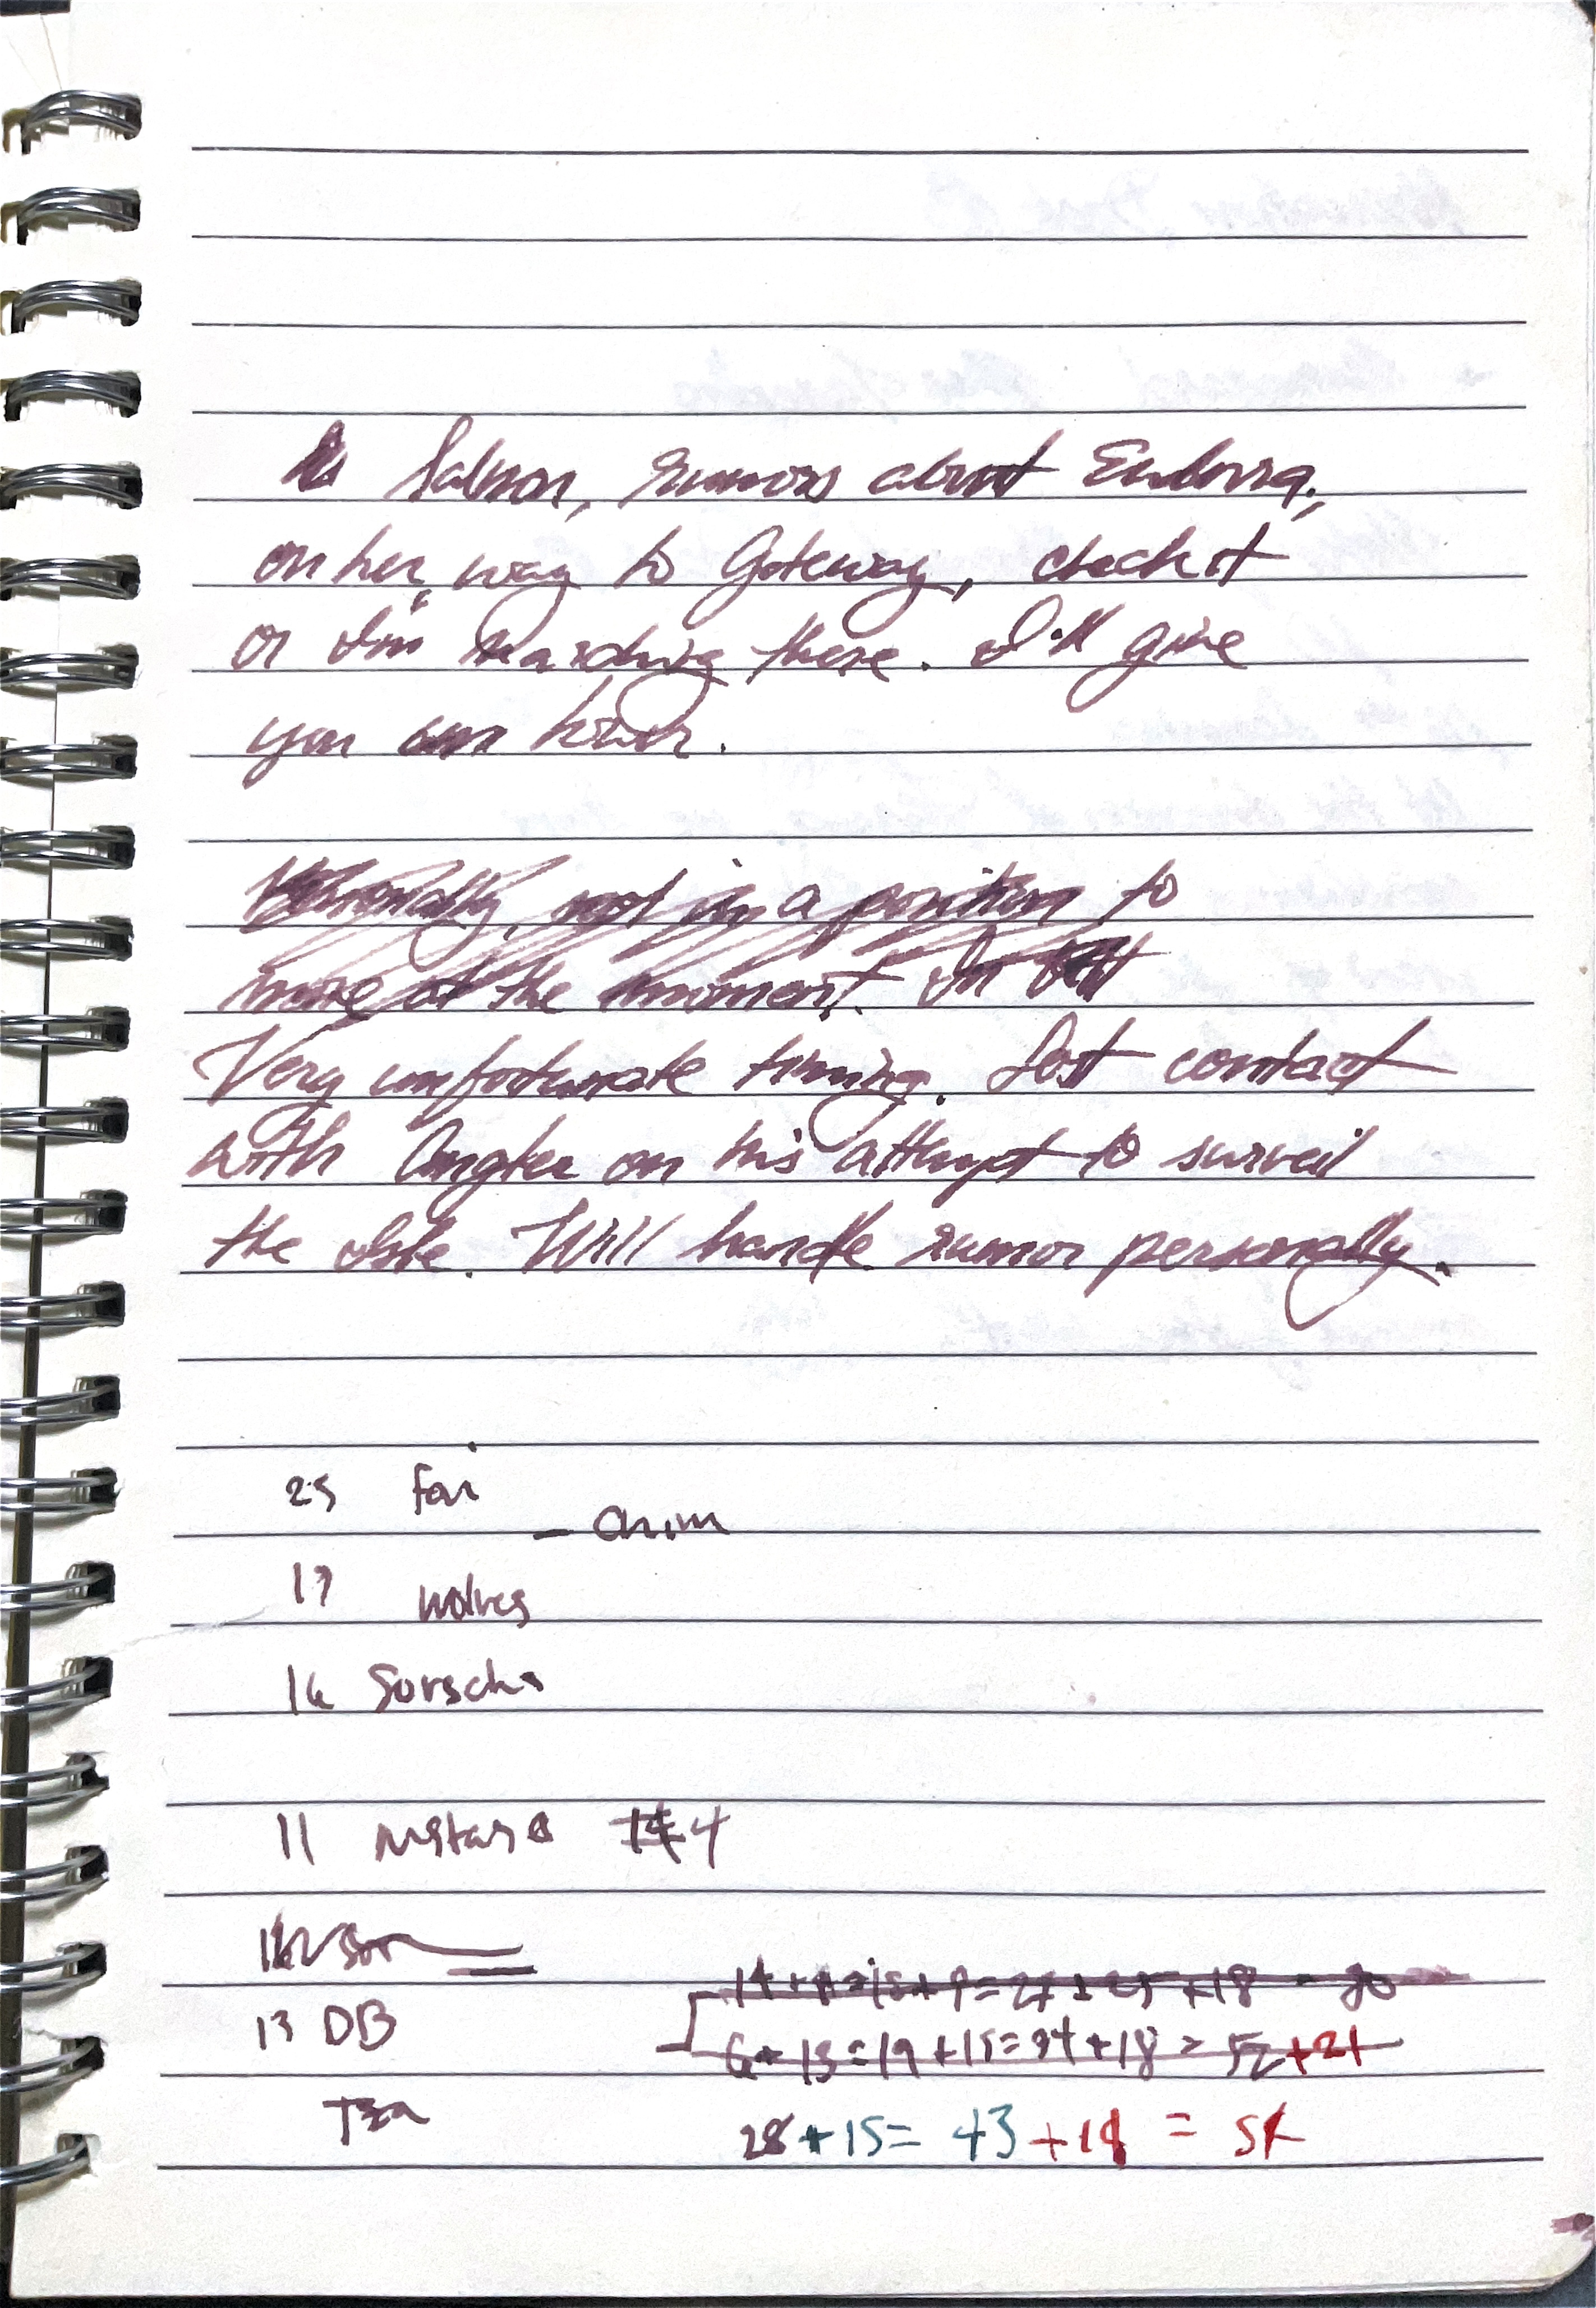 Salmon, rumors about Endovra,
on her way to Gateway, check it
or I'm marching there. I'll give
you an hour.
Personally, not in a position to
move at the moment. In
Very unfortunate timing. Lost contact
with Angler on his attempt to surveil
the Isle. Will handle rumor personally.
25 Far
17 wolves
16 Sorscha
11
13 DB
6+13=19+15=34+18=52+21
28+15=43+18=